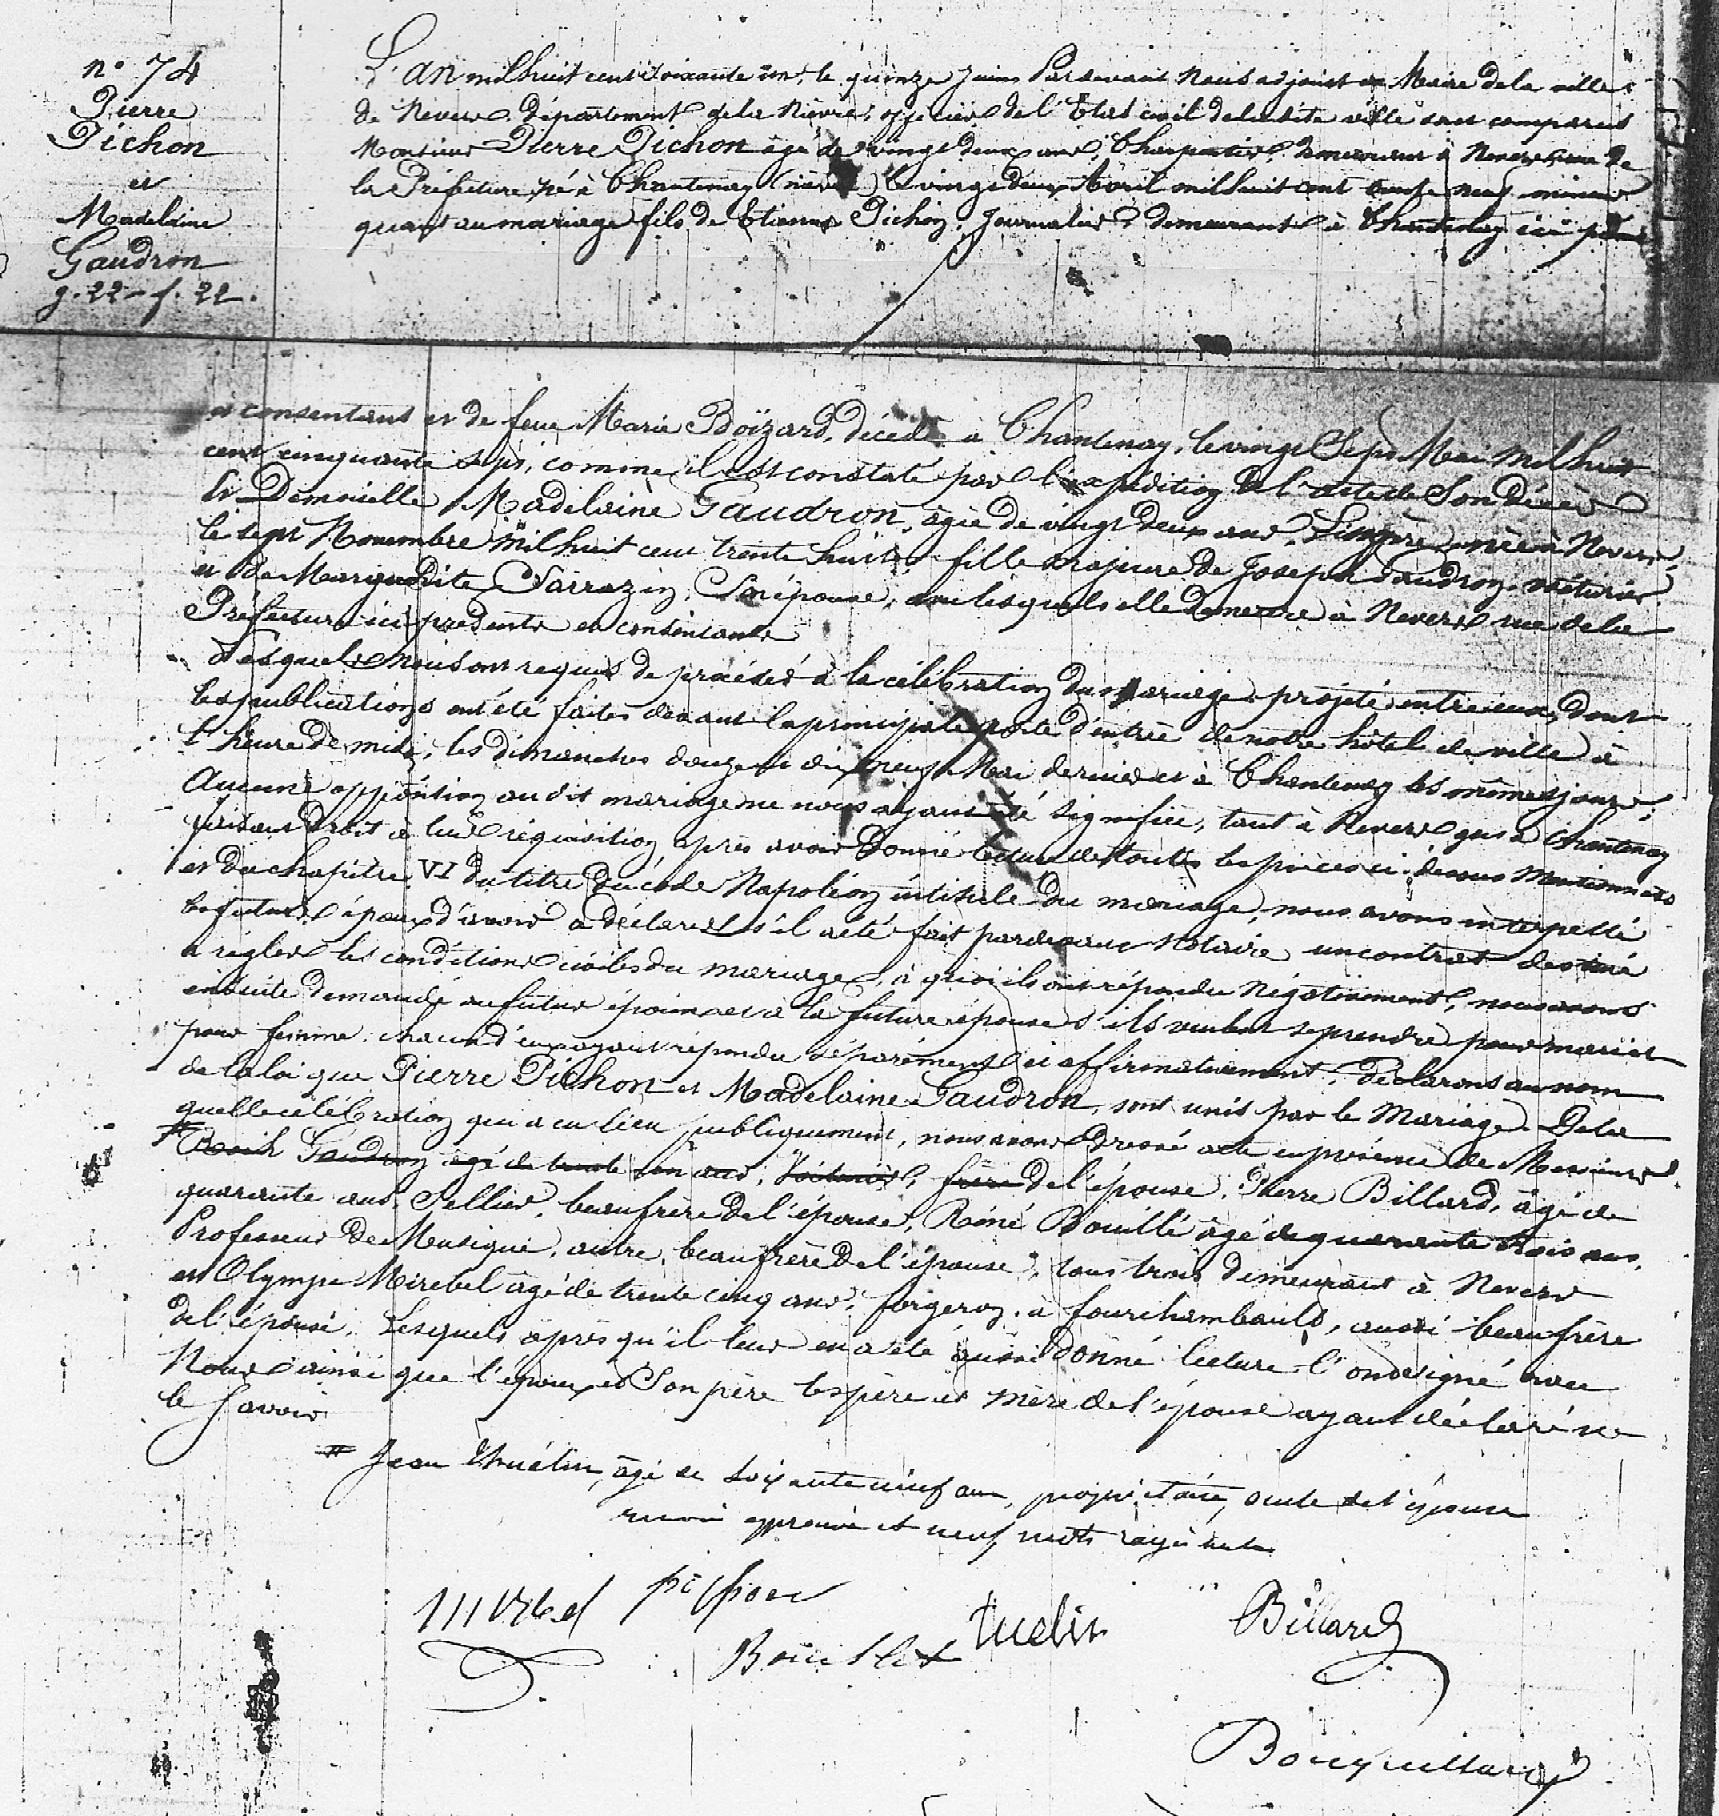 n° 74
Pierre
Pichon
et
Madelaine
Gaudron
g. 22 - f. 22.
L'an mil huit cent soixante un, le quinze juin Pardevant Nous adjoint au Maire de la ville
de Nevers département de la Nièvre, officier de l'Etat civil de la dite ville sont comparus
Monsieur Pierre Pichon âgé de vingt deux ans, Charpentier, demeurant à Nevers rue de
la Préfecture, né à Chantenay (nièvre) le vingt deux Avril mil huit cent trente neuf mineur
quant au mariage fils de Etienne Pichon, Journalier, demeurant à Chantenay ici présent
et consentant et de feue Marie Boizard, décédée à Chantenay, le vingt Sept Mai Mil huit
cent cinquante sept, comme il est constaté par l'expédition de l'acte de Son décès
Et Demoiselle Madelaine Gaudron, âgée de vingt deux ans, Lingère, née à Nevers,
le sept Novembre Mil huit cent trente huit, fille majeure de Joseph Gaudron, voiturier
et de Marguerite Sarrazin, Son épouse, avec lesquels elle demeure à Nevers rue de la
Préfecture ici présents et consentants
Lesquels nous ont requis de procéder à la célébration du mariage projeté entre eux, dont
les publications ont été faites devant la principale porte d'entrée de notre hôtel de ville à
l'heure de midi, les dimanches douze et dix neuf Mai dernier et à Chantenay les mêmes jours,
Aucune opposition au dit mariage ne nous ayant été signifiée, tant à Nevers qu'à Chantenay
faisant droit à leur réquisition, après avoir Donné lecture de toutes les pièces ci-dessus Mentionnées
et du chapitre VI du titre du code Napoléon intitulé Du mariage, nous avons interpellé
les futurs époux d'avoir à déclarer s'il a été fait pardevant Notaire un contrat destiné
à régler les conditions civiles du mariage, à quoi ils ont répondu Négativement, nous avons
ensuite demandé au futur époux et à la future épouse s'ils veulent se prendre pour mari et
pour femme, chacun d'eux ayant répondu séparément et affirmativement, déclarons au nom
de la loi que Pierre Pichon et Madelaine Gaudron, sont unis par le Mariage. De la
quelle célébration qui a eu lieu publiquement, nous avons Dressé acte en présence de Messieurs
Gaudron âgé de trente un ans, Voiturier, frère de l'épouse, Pierre Billard, âgé de
quarante ans, Sellier, beau frère de l'épouse, Réné Bouillé âgé de quarante trois ans,
Professeur de Musique, autre beau frère de l'épouse, tous trois demeurant à Nevers
et Olympe Mirebel âgé de trente cinq ans, forgeron, à fourchambault, aussi beau frère
de l'épouse. Lesquels après qu'il leur en a été aussi donné lecture l'ont signé avec
Nous ainsi que l'époux et Son père les père et mère de l'épouse ayant déclaré ne
le savoir
# Jean Thuélin, âgé de soixante neuf ans, propriétaire, oncle de l'épouse
renvoi approuvé et neuf mots rayés nuls
Mirebel
pichon
Bouillet
tuelin
Billard
Bouquillard